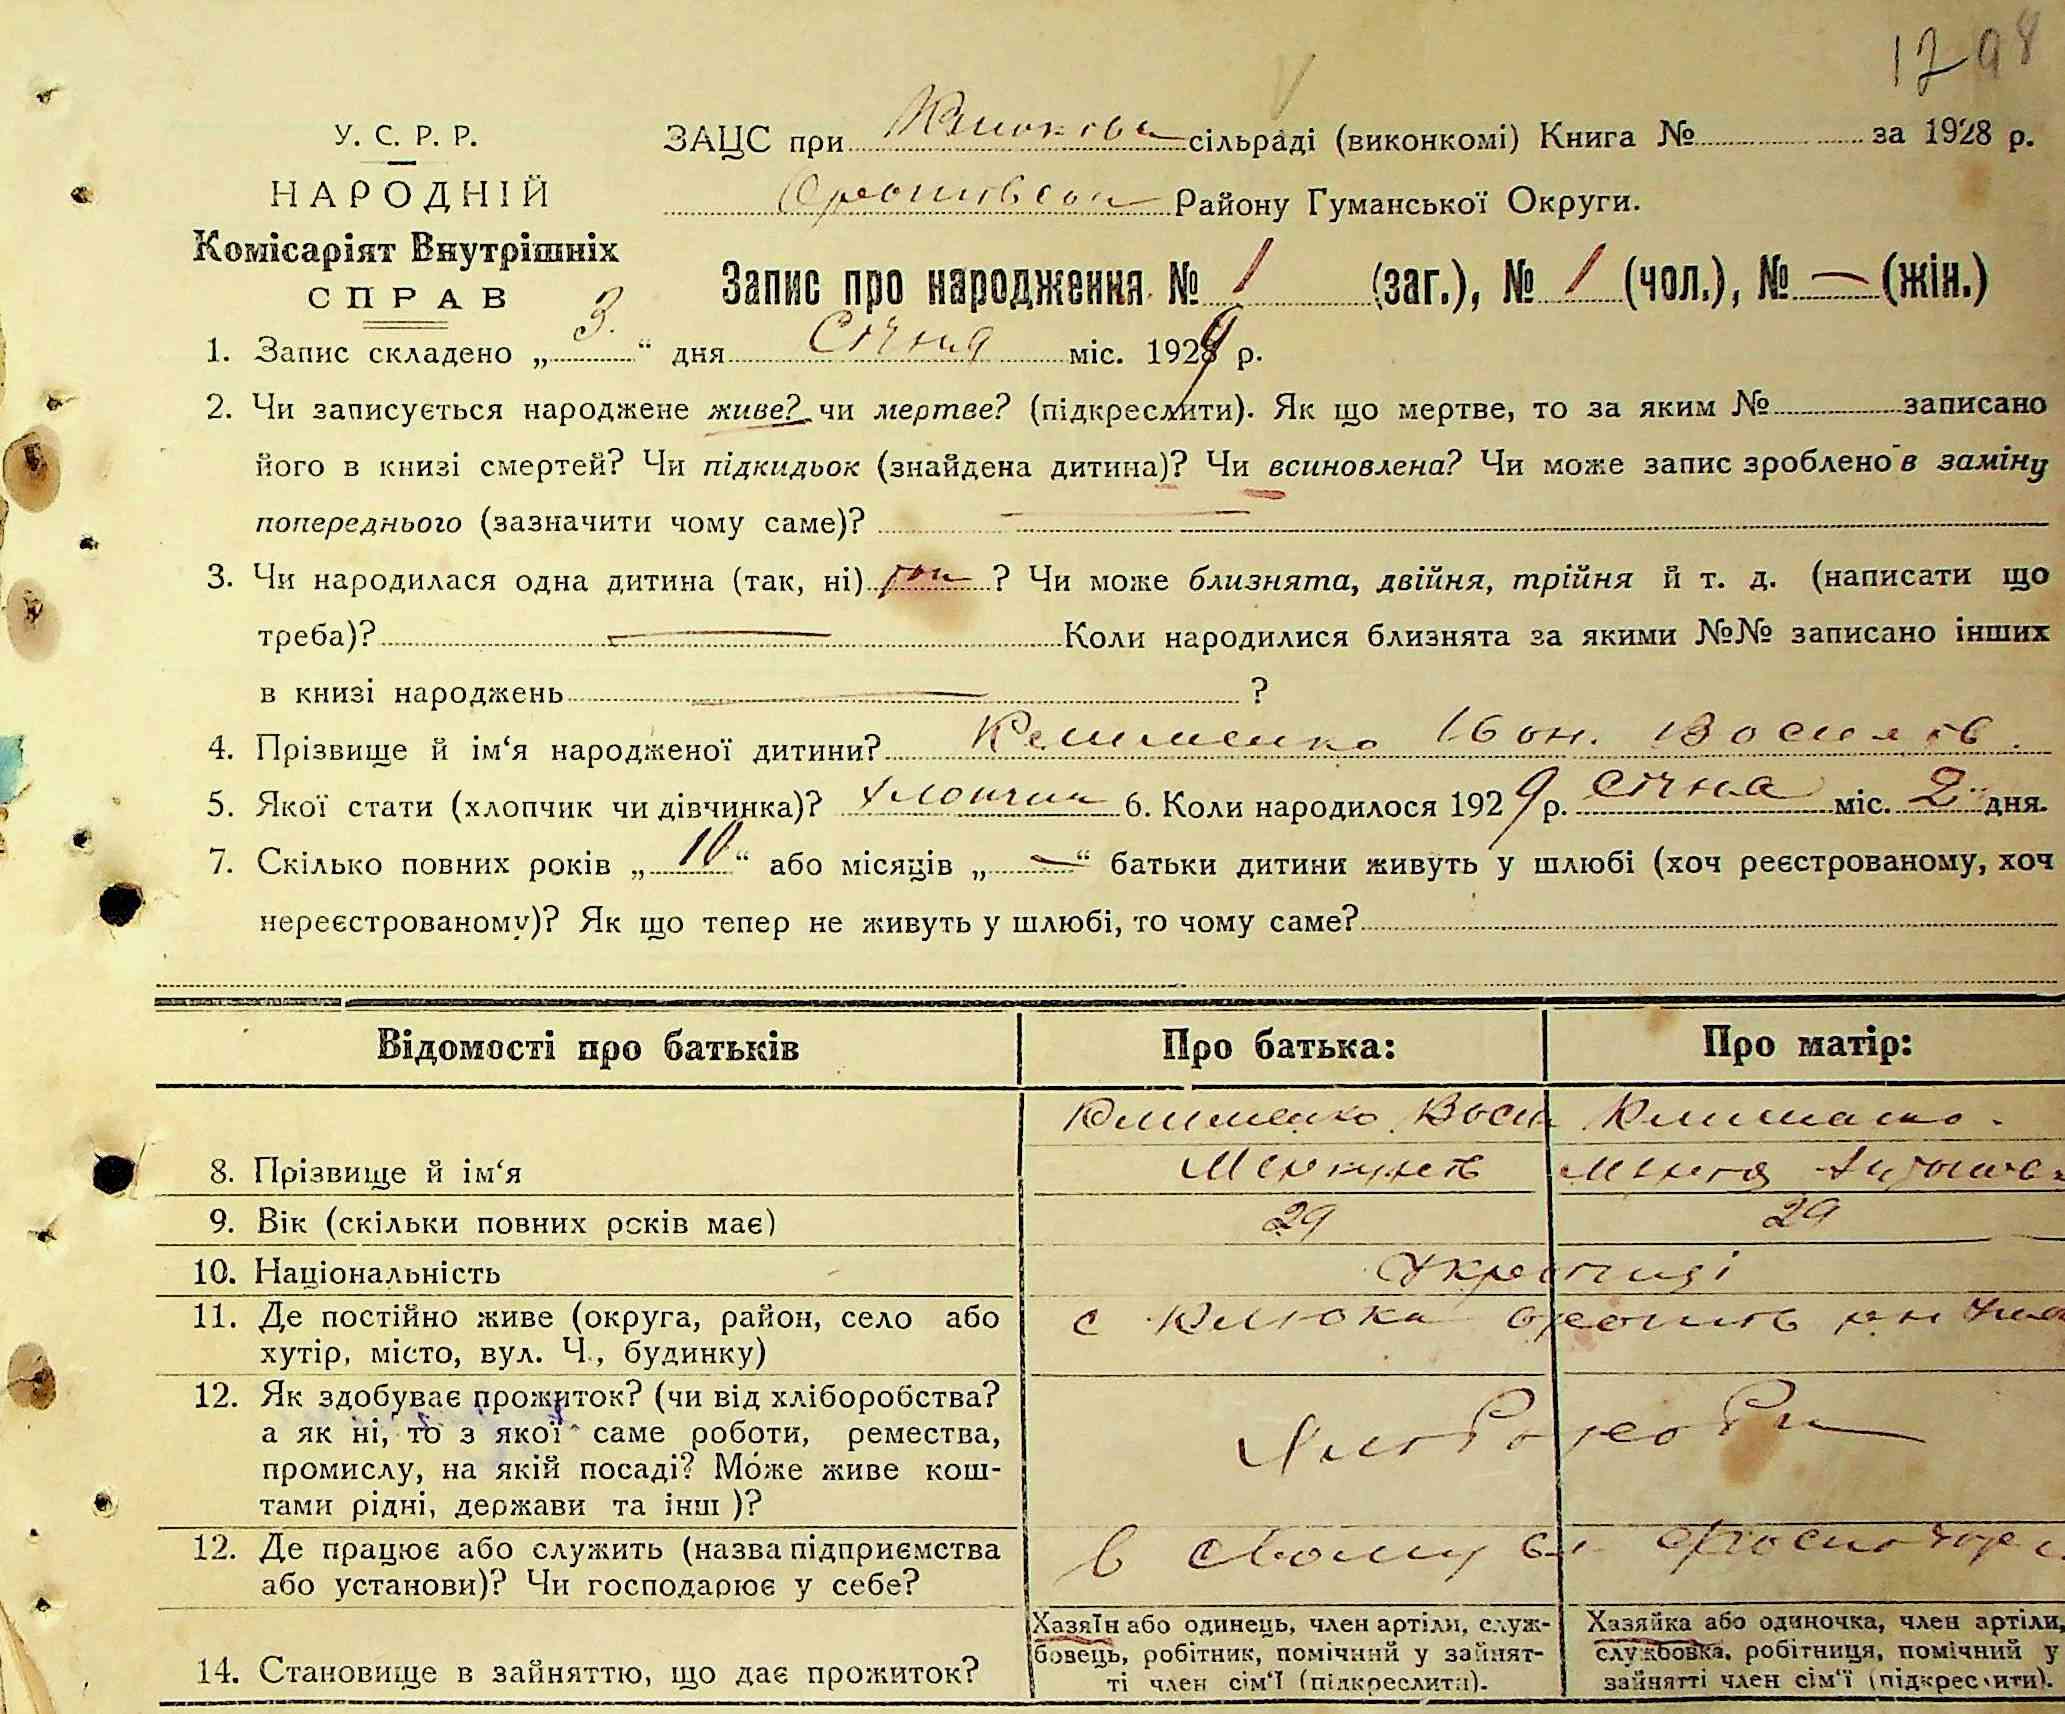 1298
У. С. Р. Р.
НАРОДНІЙ
Комісаріят Внутрішніх
СПРАВ
ЗАЦС при сільраді (виконкомі) Книга № за 1928 р.
Району Гуманської Округи.
Запис про народження № 1 (заг.), № 1 (чол.), № — (жін.)
1. Запис складено „ 3. “ дня Січня міс. 1929 р.
2. Чи записується народжене живе? чи мертве? (підкреслити). Як що мертве, то за яким № записано
його в книзі смертей? Чи підкидьок (знайдена дитина)? Чи всиновлена? Чи може запис зроблено в заміну
попереднього (зазначити чому саме)? —
3. Чи народилася одна дитина (так, ні) так ? Чи може близнята, двійня, трійня й т. д. (написати що
треба)? — Коли народилися близнята за якими №№ записано інших
в книзі народжень — ?
4. Прізвище й ім‘я народженої дитини? Клименко Іван. Василів.
5. Якої стати (хлопчик чи дівчинка)? хлопчик 6. Коли народилося 1929 р. січня міс. 2 дня.
7. Скілько повних років „ 10 “ або місяців „ — “ батьки дитини живуть у шлюбі (хоч реєстрованому, хоч
нереєстрованому)? Як що тепер не живуть у шлюбі, то чому саме?
Відомості про батьків Про батька: Про матір:
Клименко Васи Клименко.
8. Прізвище й ім‘я Меркурів
9. Вік (скільки повних років має) 29 29
10. Національність Українці
11. Де постійно живе (округа, район, село або с Клюки
хутір, місто, вул. Ч., будинку)
12. Як здобуває прожиток? (чи від хліборобства?
а як ні, то з якої саме роботи, ремества, Хлібороби
промислу, на якій посаді? Може живе кош-
тами рідні, держави та інш )?
12. Де працює або служить (назва підприємства в свому
або установи)? Чи господарює у себе?
14. Становище в зайняттю, що дає прожиток?
Хазяїн або одинець, член артіли, служ-
бовець, робітник, помічний у зайнят-
ті член сім‘ї (підкреслити).
Хазяйка або одиночка, член артіли,
службовка, робітниця, помічний у
зайнятті член сім‘ї (підкреслити).